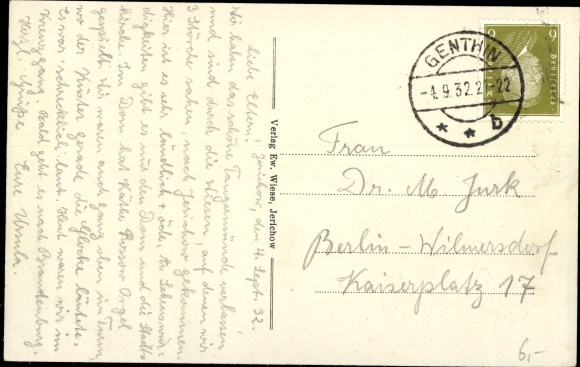 Jerichow, den 4. Sept. 32.
Liebe Eltern!
Wir haben das schöne Tangermünde verlassen
und sind durch die Wiesen, auf denen wir
3 Störche sahen, nach Jerichow gekommen.
Hier ist es sehr ländlich + öde. An Sehenswür-
digkeiten gibt es nur den Dom und die Stadt-
kirche. Im Dom hat Käthe Orgel
gespielt. Wir waren auch ganz oben im Turm,
wo der Küster gerade die Glocke läutete.
Es war schrecklich laut. Heut waren wir im
Kreuzgang. Bald geht es nach Brandenburg.
Herzl. Grüße Eure Ursula.
Verlag Ew. Wiese, Jerichow
GENTHIN
-4.9.32.2 -22
* * b
9 9
Deutsches Reich
Frau
Dr. M. Jurk
Berlin-Wilmersdorf
Kaiserplatz 17
6,-